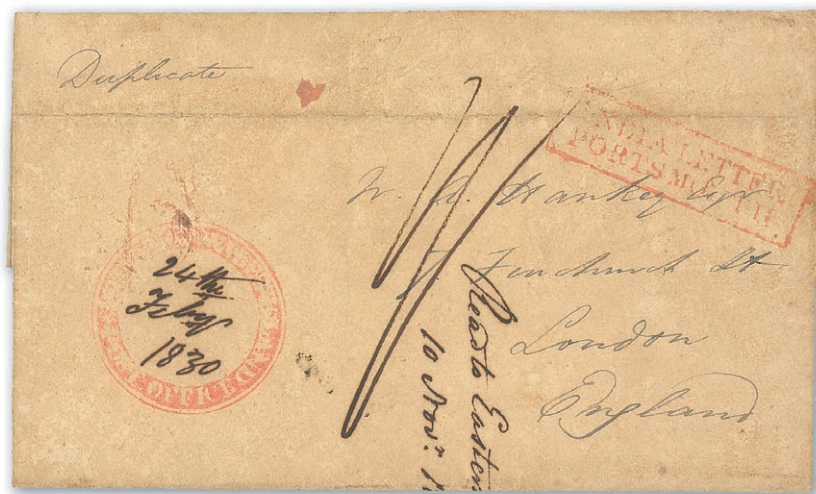 Duplicate
INDIA LETTER
PORTSMOUTH
W. A. Hankey Esqr
7 Fenchurch St
London
England
24th
Feby
1830
OFFICE
10 Novr.